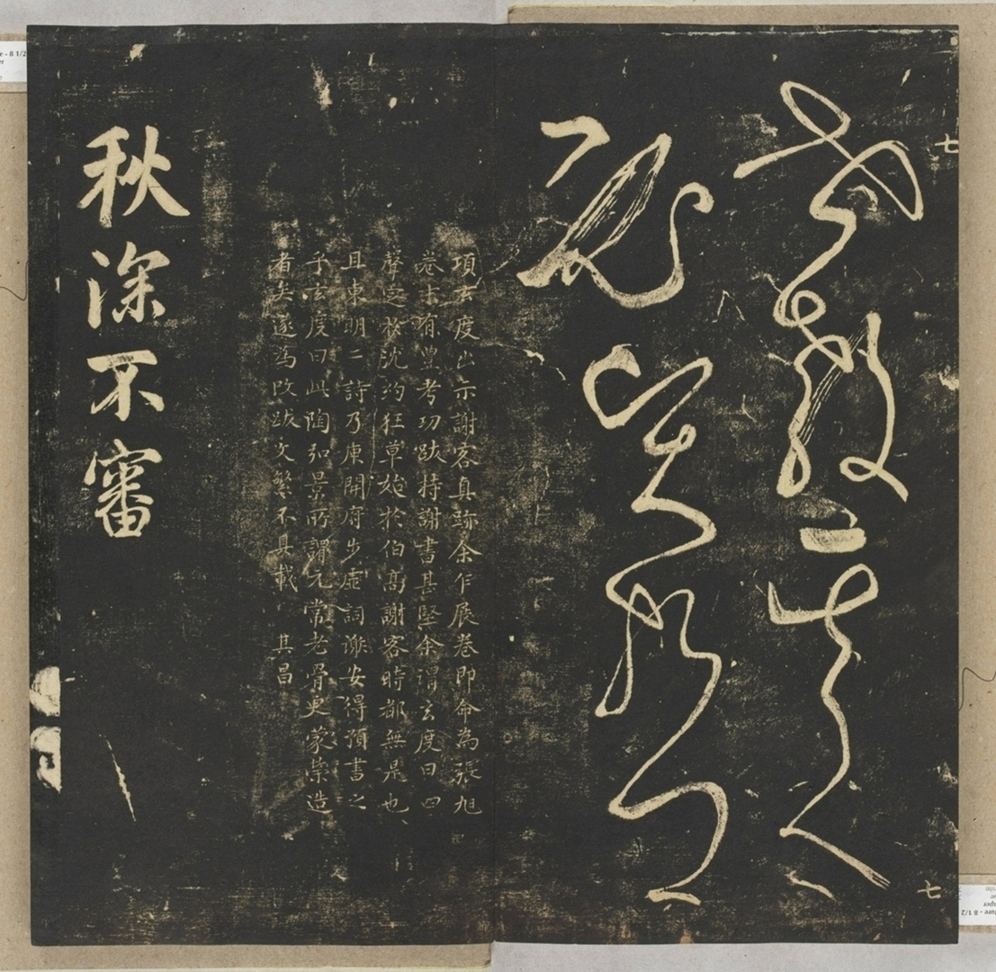 七
世教其人
必賢哲
項玄度出示謝客真跡余乍展卷即命為張旭
卷末有豐考功跋持謝書甚堅余謂玄度曰四
聲定於沈約狂草始於伯高謝客時都無是也
且東明二詩乃庾開府步虛詞謝安得預書之
乎玄度曰此陶弘景所謂元常老骨更蒙榮造
者矣遂為改跋文繁不具載 其昌
秋深不審
七